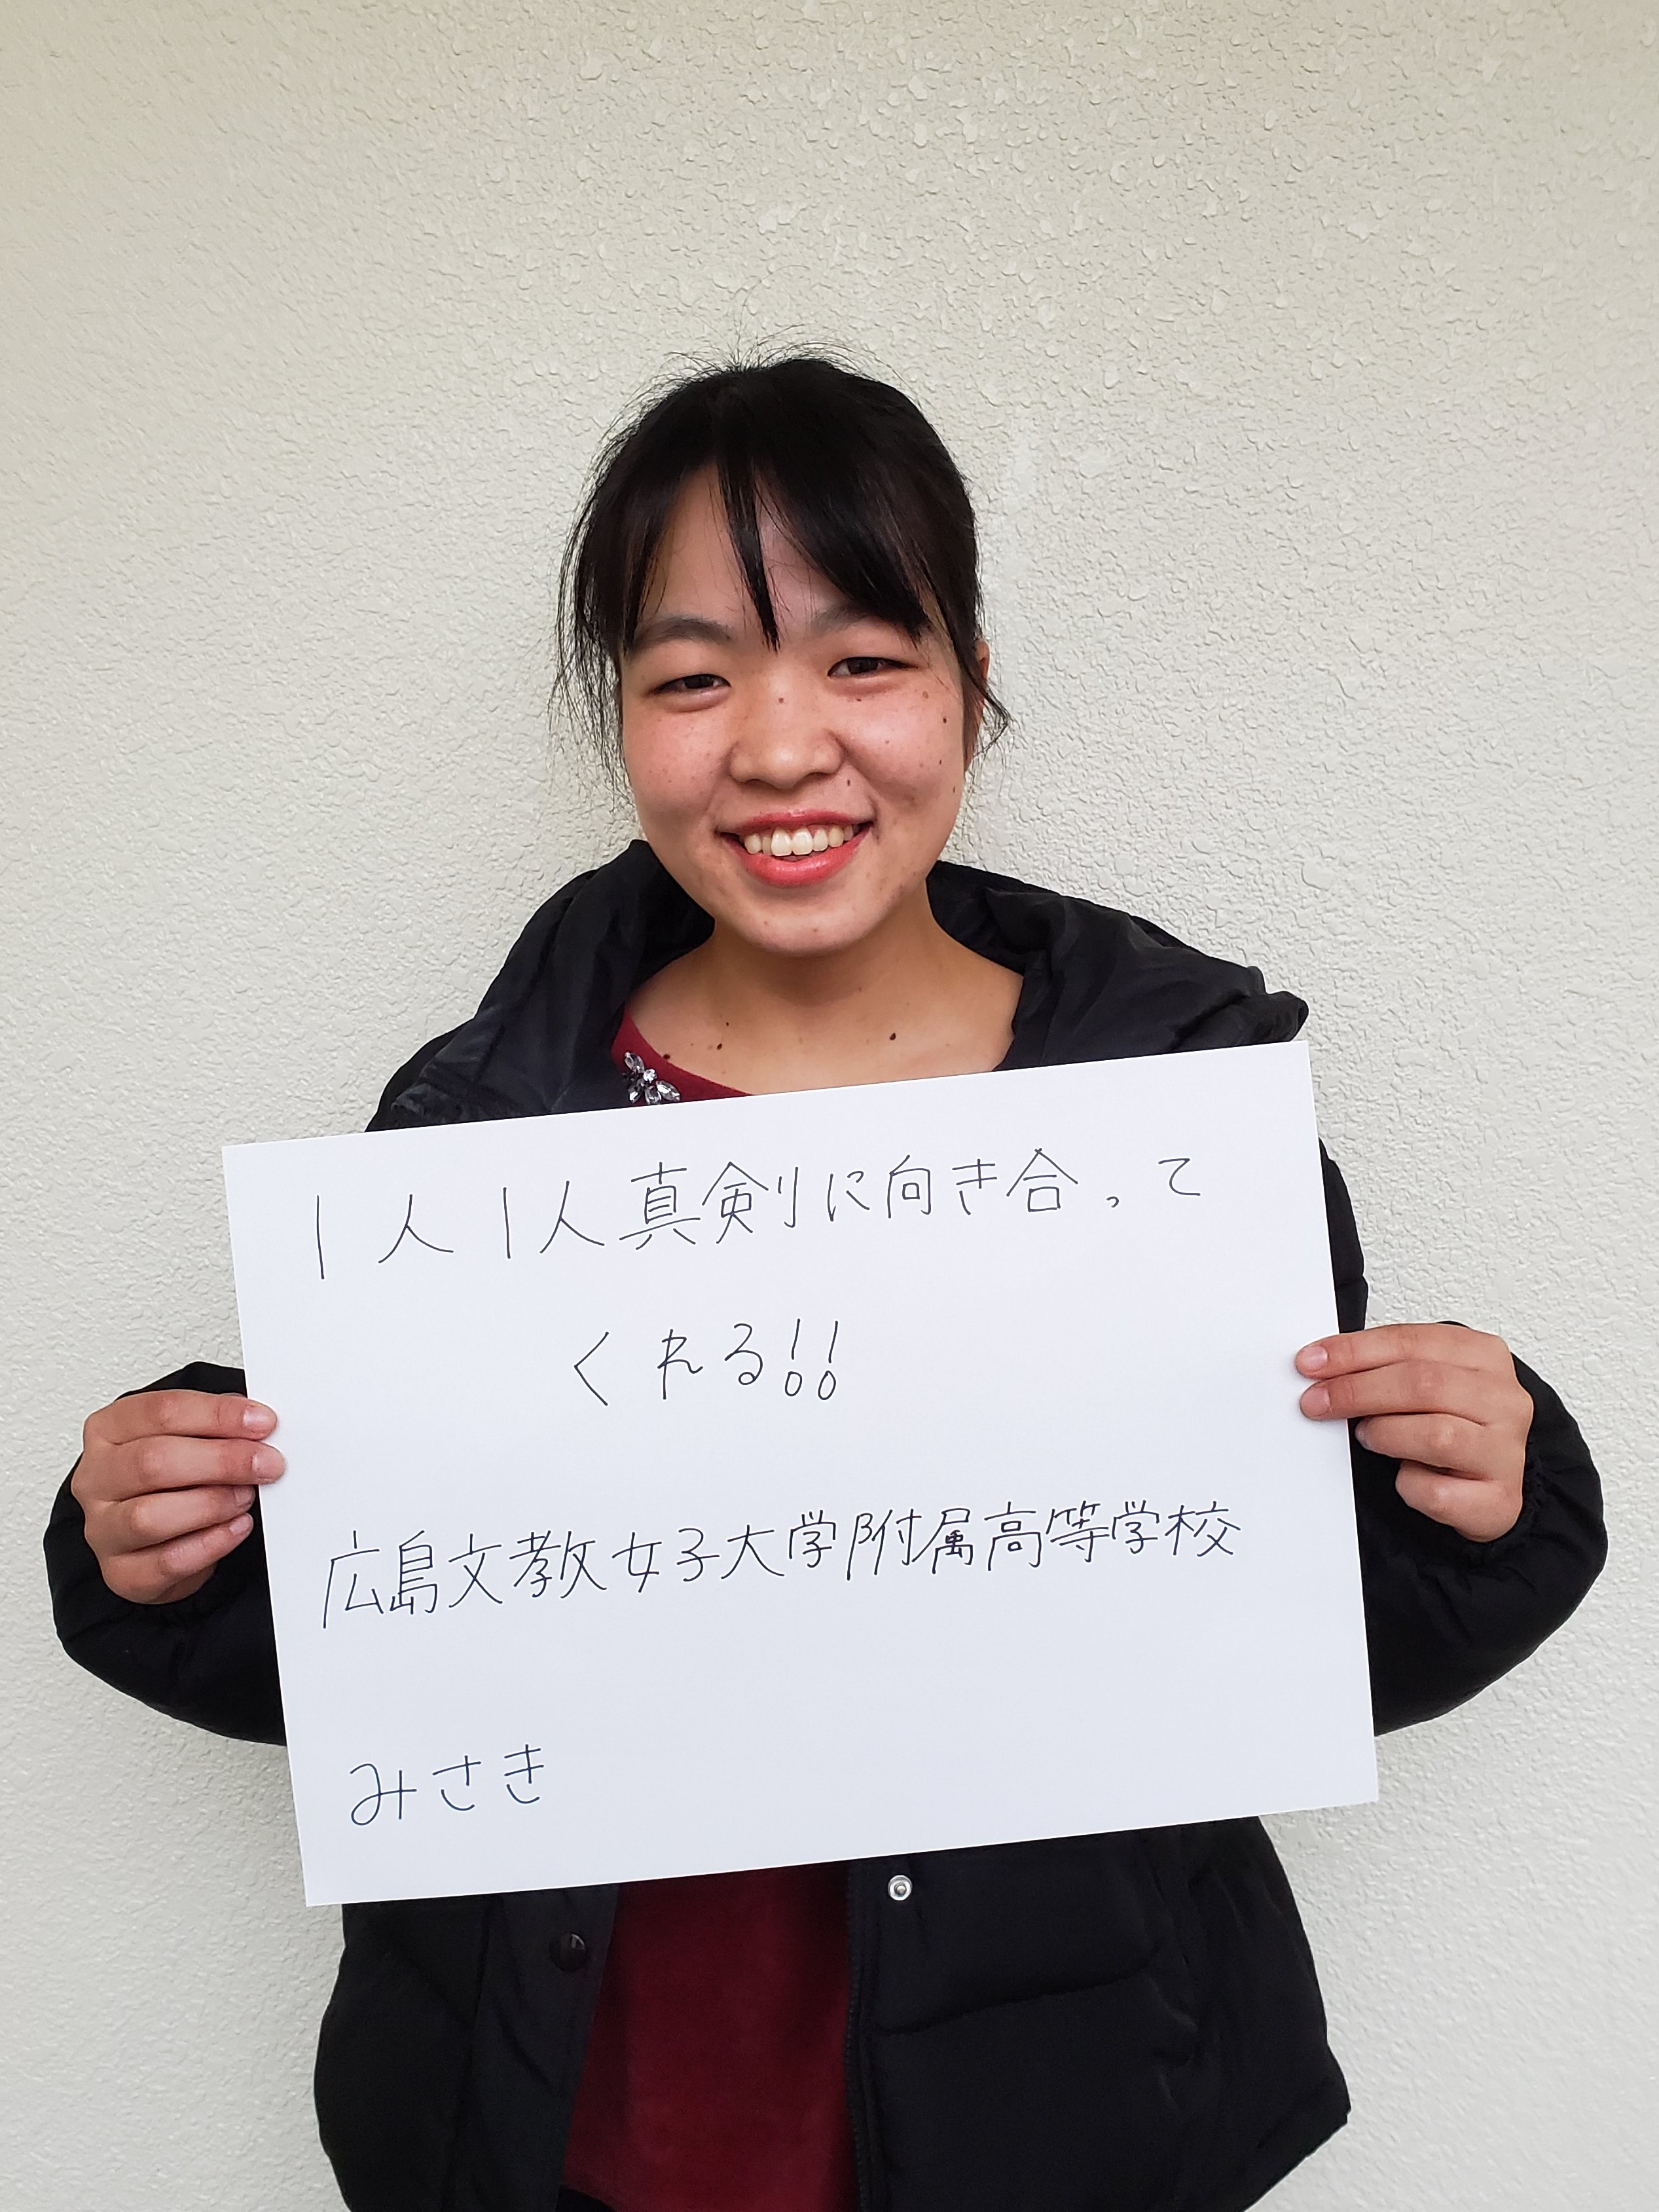 1人1人真剣に向き合って
くれる!!
広島文教女子大学附属高等学校
みさき